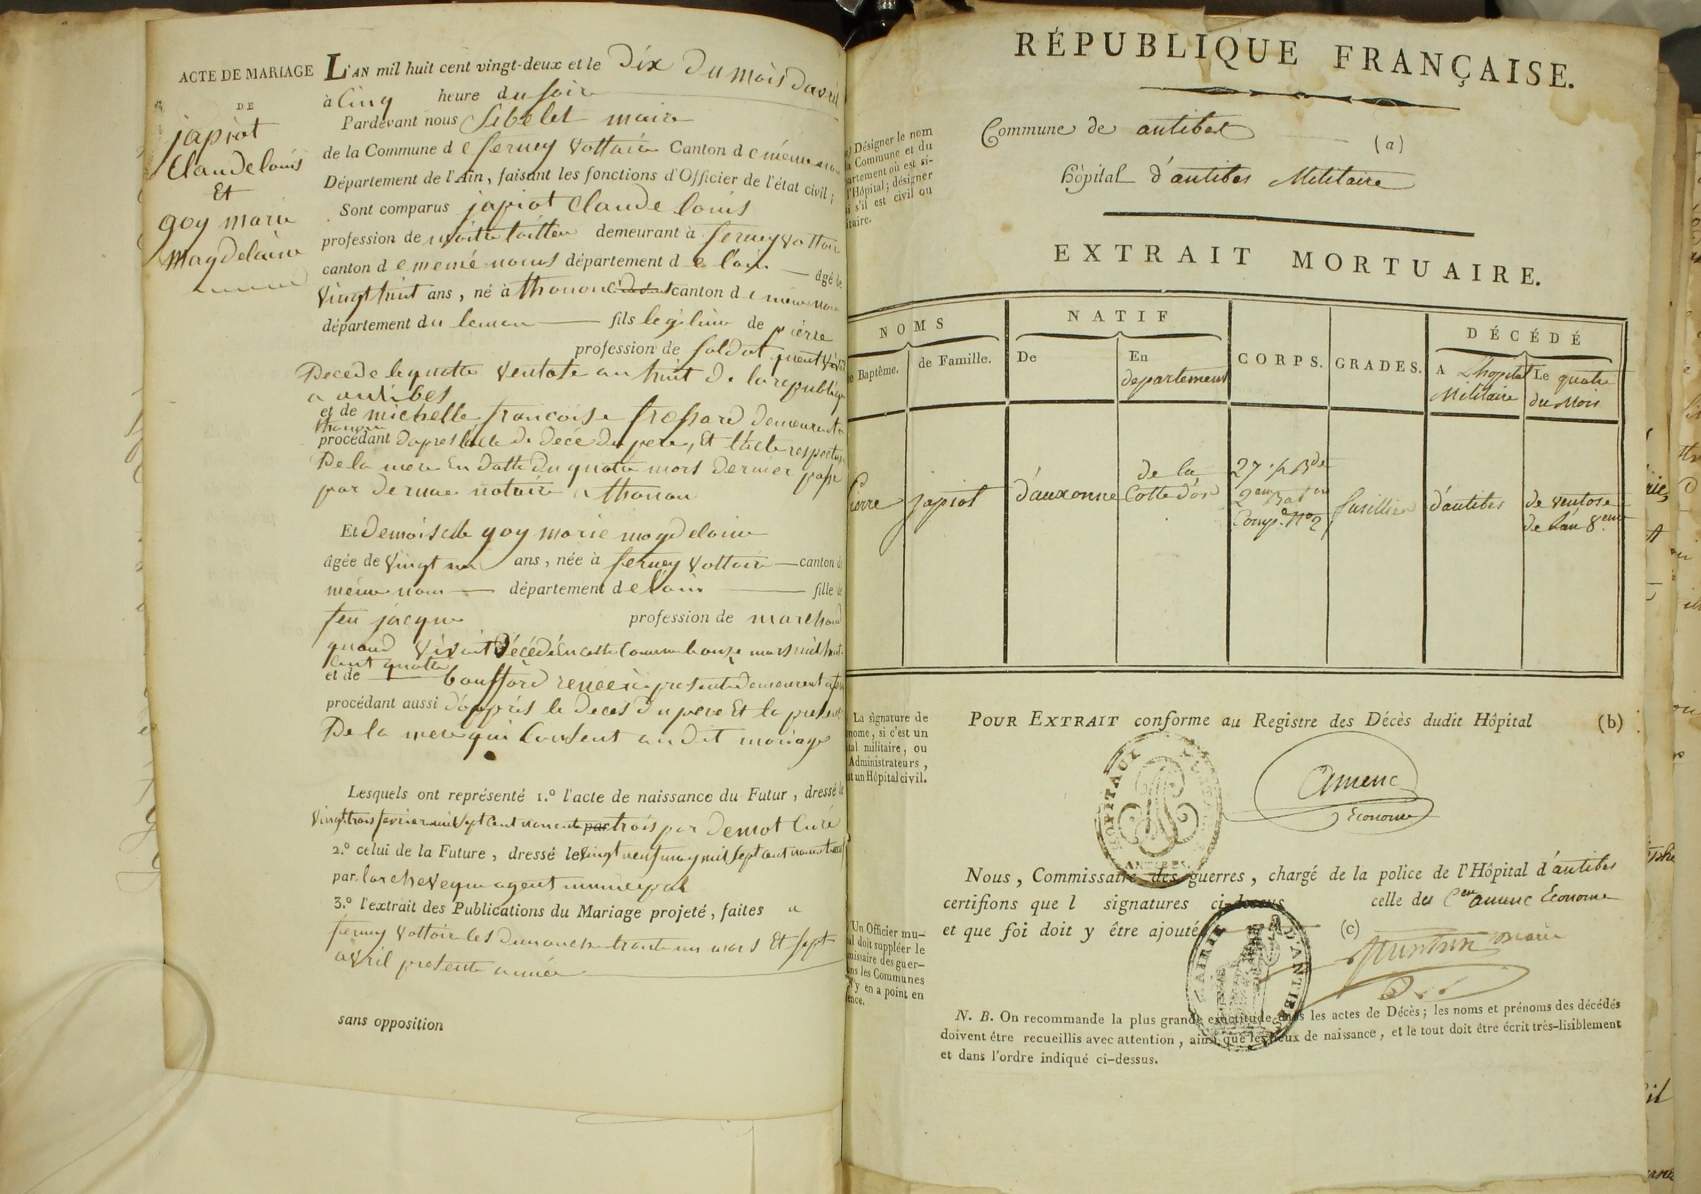 ACTE DE MARIAGE
DE
japiot
Claude louis
Et
goy marie
magdelaine
L'AN mil huit cent vingt-deux et le Dix Du mois Davril
à Cinq heure du soir
Pardevant nous Sibelet maire
de la Commune de ferney Voltaire Canton de même nom
Département de l'Ain, faisant les fonctions d'Officier de l'état civil;
Sont comparus japiot Claude louis
profession de demeurant à ferney Voltaire
canton de même nom département de l'ain âgé de
Vingt huit ans, né à thonon canton de même nom
département du leman fils legitime de pierre
profession de soldat quand Vivant
Decede le quatre Ventose an huit De la republique
a antibes
et de michelle francoise frossard demeurant a
thonon
procédant dapres lacte de décé du pere, Et l'acte respectueux
De la mere En datte du quatre mars dernier passé
par notaire a thonon
Et Demoiselle goy marie magdelaine
âgée de Vingt ans, née à ferney Voltaire canton de
même nom département de l'ain fille de
feu jacque profession de marchand
quand Vivant Décédé En cette Commune le onze mars mil huit
cent quatre
et de bouffard renee ici presente demeurant a
procédant aussi d'après le deces du pere Et la presence
De la mere qui Consent au dit mariage
Lesquels ont représenté 1.º l'acte de naissance du Futur, dressé le
Vingt trois fevrier mil sept cent nonente trois par Demot Curé
2.º celui de la Future, dressé le Vingt neuf may mil sept cent
par larcheveque agent municipal
3.º l'extrait des Publications du Mariage projeté, faites a
ferney Voltaire les Dimanche trente un mars Et sept
avril presente année
sans opposition
RÉPUBLIQUE FRANÇAISE.
Commune de antibes (a)
hôpital d'antibes Militaire
Désigner le nom
la Commune et du
département où est si-
l'Hôpital; désigner
s'il est civil ou
itaire.
EXTRAIT MORTUAIRE.
NOMS NATIF CORPS. GRADES. DÉCÉDÉ
de Baptême. de Famille. De En departement A L'hopital Militaire Le quatre du Mois
Pierre japiot d'auxonne de la Cotte d'or 27 1/2 Bde 2eme Baton Compe. No 2 fusillier d'antibes de Ventose de l'an 8eme
La signature de
nome, si c'est un
tal militaire, ou
Administrateurs,
st un Hôpital civil.
POUR EXTRAIT conforme au Registre des Décès dudit Hôpital (b)
HOPITAUX
ANTIBES
Amenc
Econome
Nous, Commissaire des guerres, chargé de la police de l'Hôpital d'antibes
certifions que l signatures ci-dessus celle du Cen amenc Econome
et que foi doit y être ajouté (c)
Un Officier mu-
al doit suppléer le
missaire des guer-
ns les Communes
'y en a point en
ence.
MAIRIE D'ANTIBES
maire
N. B. On recommande la plus grande exactitude dans les actes de Décès; les noms et prénoms des décédés
doivent être recueillis avec attention, ainsi que les lieux de naissance, et le tout doit être écrit très-lisiblement
et dans l'ordre indiqué ci-dessus.